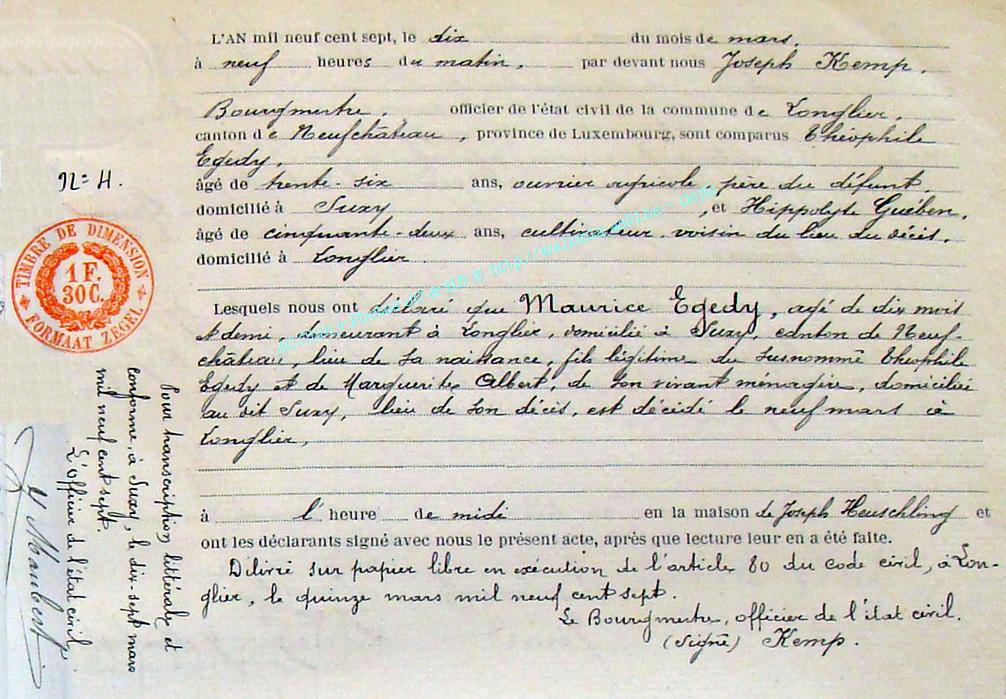 L'AN mil neuf cent sept, le dix du mois de mars,
à neuf heures du matin, par devant nous Joseph Kemp,
Bourgmestre, officier de l'état civil de la commune de Longlier,
canton de Neufchâteau, province de Luxembourg, sont comparus Théophile
Egedy,
âgé de trente-six ans, ouvrier agricole, père du défunt,
domicilié à Suxy, et Hippolyte Guében,
âgé de cinquante-deux ans, cultivateur, voisin du lieu du décès,
domicilié à Longlier.
Lesquels nous ont déclaré que Maurice Egedy, agé de dix mois
et demi, demeurant à Longlier, domicilié à Suxy, canton de Neuf-
château, lieu de sa naissance, fils légitime du susnommé Théophile
Egedy et de Marguerite Albert, de son vivant ménagère, domiciliée
au dit Suxy, lieu de son décès, est décédé le neuf mars à
Longlier,
à l' heure de midi en la maison de Joseph Heuschling et
ont les déclarants signé avec nous le présent acte, après que lecture leur en a été faite.
Délivré sur papier libre en exécution de l'article 80 du code civil, à Lon-
glier, le quinze mars mil neuf cent sept.
Le Bourgmestre, officier de l'état civil.
(Signé) Kemp.
N° 4.
TIMBRE DE DIMENSION
1 F.
30 C.
FORMAAT ZEGEL
Pour transcription littérale et
conforme, à Suxy, le dix-sept mars
mil neuf cent sept.
L'officier de l'état civil,
Maubert
http://